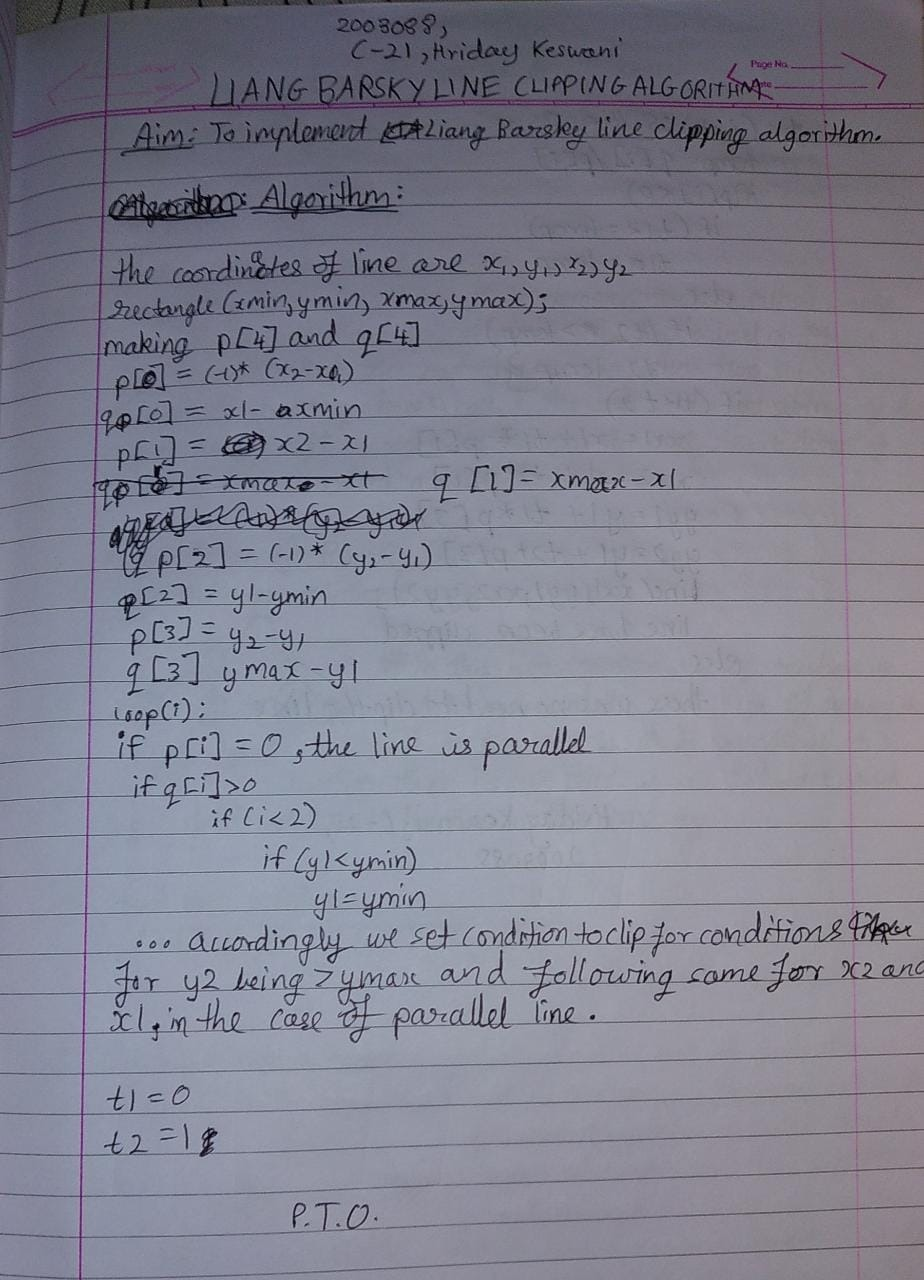 2003088,
C-21, Hriday Keswani
Page No.
LIANG BARSKY LINE CLIPPING ALGORITHM
Aim: To implement Liang Barsky line clipping algorithm.
Algorithm:
the coordinates of line are x1, y1, x2, y2
rectangle (xmin, ymin, xmax, ymax);
making p[4] and q[4]
p[0] = (-1)* (x2-x1)
q[0] = x1- xmin
p[1] = x2 - x1
q[1] = xmax-x1
p[2] = (-1)* (y2-y1)
q[2] = y1-ymin
p[3] = y2-y1
q[3] ymax-y1
loop(i):
if p[i] = 0, the line is parallel
if q[i]>0
if (i<2)
if (y1<ymin)
y1=ymin
... accordingly we set condition to clip for conditions
for y2 being >ymax and following same for x2 and
x1, in the case of parallel line.
t1=0
t2=1
P.T.O.